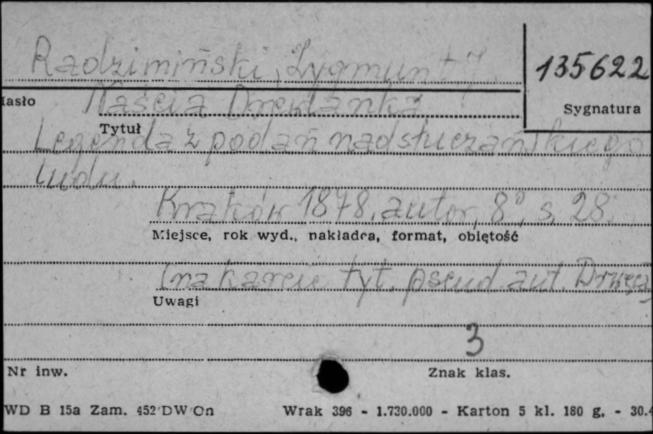 Radzimiński, Zygmunt
135622
Hasło
Naścia
Sygnatura
Tytuł
Legenda z podań nadsłuczańskiego
ludu.
Kraków 1878, autor, 8°, s. 28.
Miejsce, rok wyd., nakładca, format, objętość
(na karcie tyt. pseud aut.
Uwagi
3
Nr inw.
Znak klas.
WD B 15a Zam. 452 DW On Wrak 396 - 1.730.000 - Karton 5 kl. 180 g. - 30.4